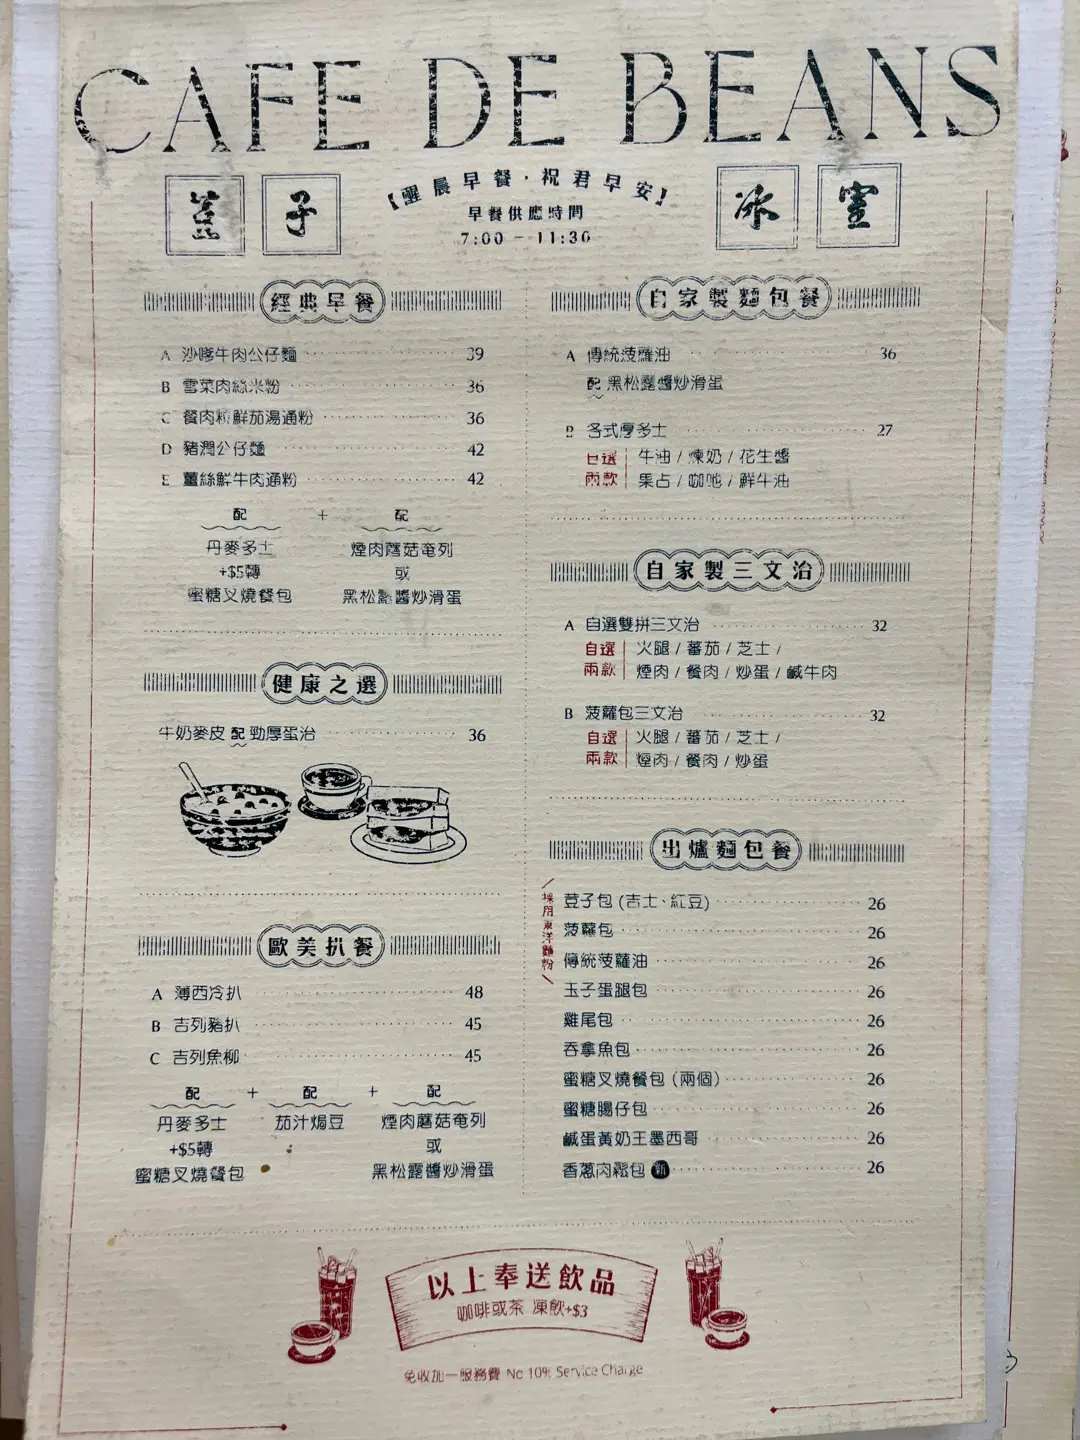 CAFE DE BEANS
荳子
冰室
【醒晨早餐·祝君早安】
早餐供應時間
7:00 - 11:30
經典早餐
A 沙嗲牛肉公仔麵 39
B 雪菜肉絲米粉 36
C 餐肉粒鮮茄湯通粉 36
D 豬潤公仔麵 42
E 薑絲鮮牛肉通粉 42
配 + 配
丹麥多士 煙肉蘑菇奄列
+$5轉 或
蜜糖叉燒餐包 黑松露醬炒滑蛋
健康之選
牛奶麥皮 配 勁厚蛋治 36
歐美扒餐
A 薄西冷扒 48
B 吉列豬扒 45
C 吉列魚柳 45
配 + 配 + 配
丹麥多士 茄汁焗豆 煙肉蘑菇奄列
+$5轉 或
蜜糖叉燒餐包 黑松露醬炒滑蛋
自家製麵包餐
A 傳統菠蘿油 36
配 黑松露醬炒滑蛋
B 各式厚多士 27
自選 牛油 / 煉奶 / 花生醬
兩款 果占 / 咖吔 / 鮮牛油
自家製三文治
A 自選雙拼三文治 32
自選 火腿 / 蕃茄 / 芝士 /
兩款 煙肉 / 餐肉 / 炒蛋 / 鹹牛肉
B 菠蘿包三文治 32
自選 火腿 / 蕃茄 / 芝士 /
兩款 煙肉 / 餐肉 / 炒蛋
出爐麵包餐
採用東洋麵粉
荳子包 (吉士、紅豆) 26
菠蘿包 26
傳統菠蘿油 26
玉子蛋腿包 26
雞尾包 26
吞拿魚包 26
蜜糖叉燒餐包 (兩個) 26
蜜糖腸仔包 26
鹹蛋黃奶王墨西哥 26
香蔥肉鬆包 新 26
以上奉送飲品
咖啡或茶 凍飲+$3
免收加一服務費 No 10% Service Charge